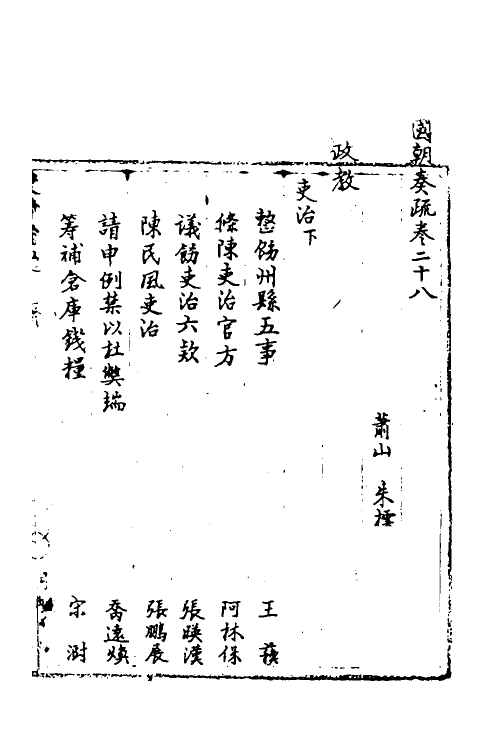 國朝奏疏卷二十八
蕭山 朱橒
政教
吏治下
整飭州縣五事 王蓍
條陳吏治官方 阿林保
議飭吏治六欵 張映漢
陳民風吏治 張鵬展
請申例禁以杜弊端 喬遠煐
籌補倉庫錢糧 宋澍